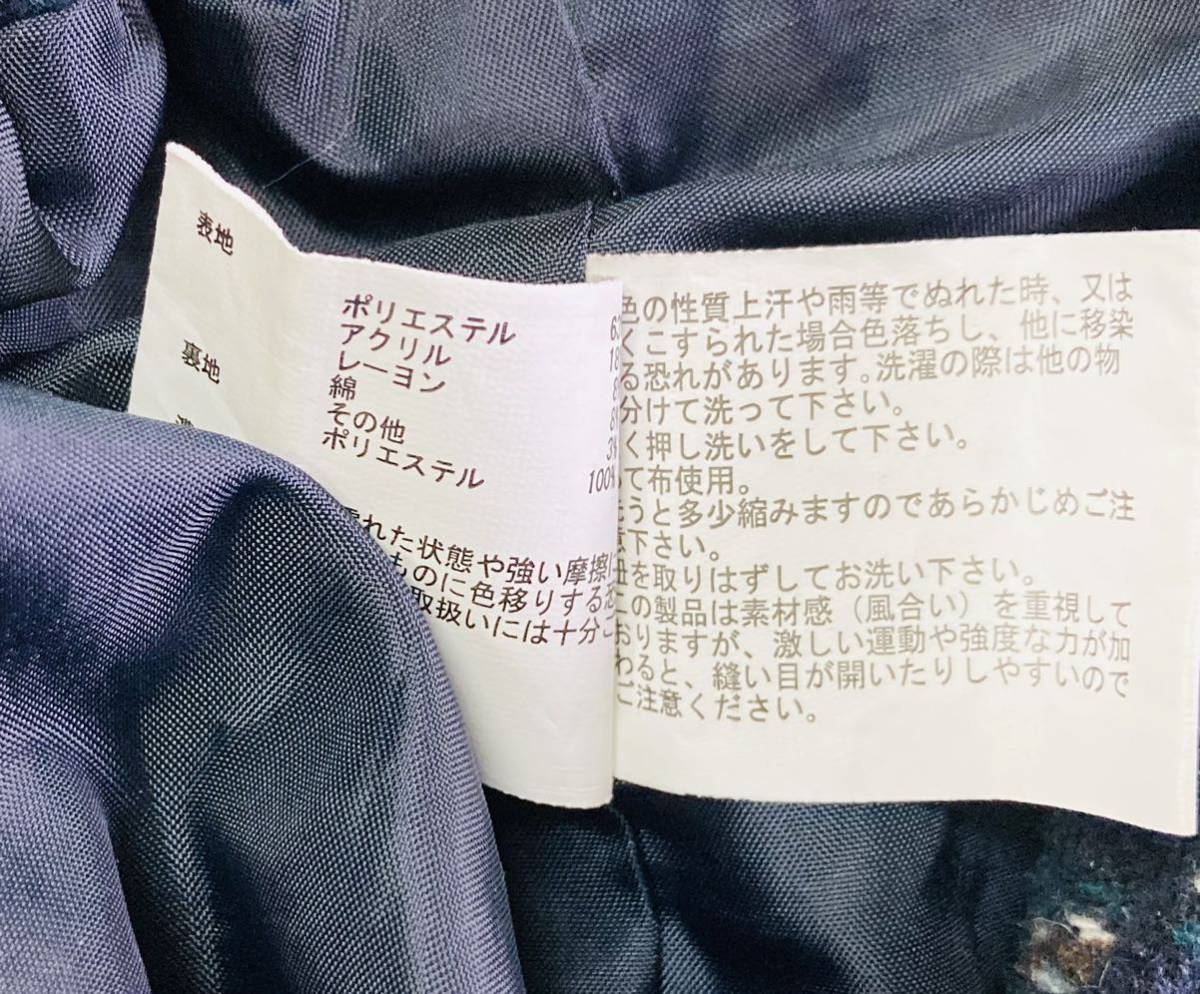 表地
ポリエステル 6
アクリル 18
レーヨン 8
綿 8
その他 3
裏地
ポリエステル 100%
れた状態や強い摩擦
ものに色移りする恐
取扱いには十分ご
色の性質上汗や雨等でぬれた時、又は
くこすられた場合色落ちし、他に移染
る恐れがあります。洗濯の際は他の物
分けて洗って下さい。
く押し洗いをして下さい。
て布使用。
洗うと多少縮みますのであらかじめご注
意下さい。
紐を取りはずしてお洗い下さい。
この製品は素材感(風合い)を重視して
おりますが、激しい運動や強度な力が加
わると、縫い目が開いたりしやすいので
ご注意ください。